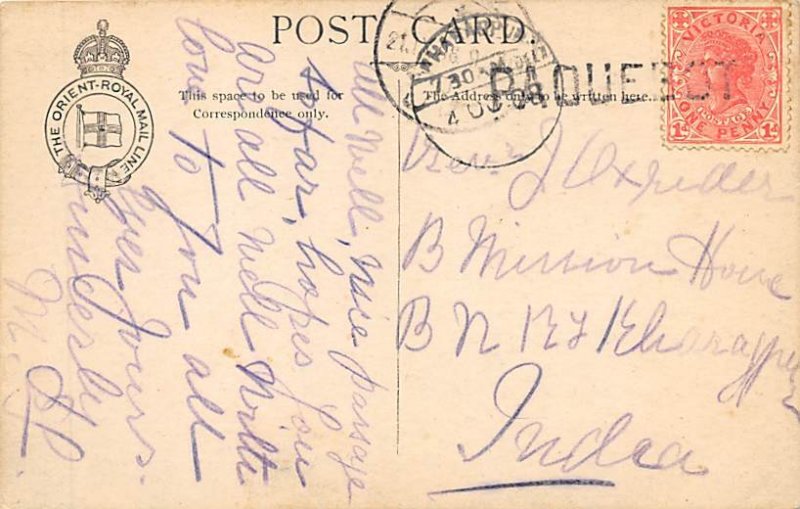 POST CARD.
THE ORIENT-ROYAL MAIL LINE
This space to be used for
Correspondence only.
The Address only to be written here.
PAQUEBOT
VICTORIA
POSTAGE
ONE PENNY
1d 1d
30 AM
All well, nice passage
so far, hopes you
are all well with
love to you all
Ever yours
J
B Mission House
B N Ry Kharagpur
India